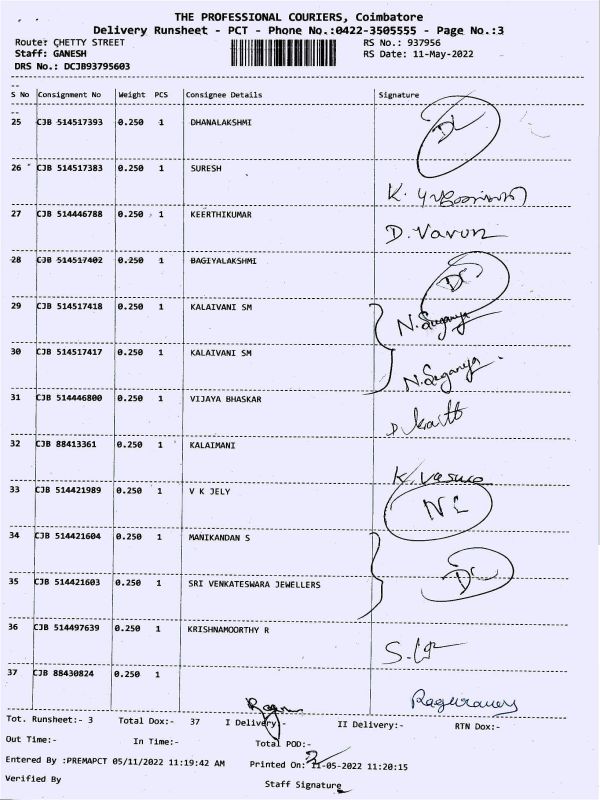 THE PROFESSIONAL COURIERS, Coimbatore
Delivery Runsheet - PCT - Phone No.:0422-3505555 - Page No.:3
Route: CHETTY STREET RS No.: 937956
Staff: GANESH RS Date: 11-May-2022
DRS No.: DCJB93795603
S No Consignment No Weight PCS Consignee Details Signature
25 CJB 514517393 0.250 1 DHANALAKSHMI DL
26 CJB 514517383 0.250 1 SURESH
27 CJB 514446788 0.250 1 KEERTHIKUMAR D. Varun
28 CJB 514517402 0.250 1 BAGIYALAKSHMI DL
29 CJB 514517418 0.250 1 KALAIVANI SM N. Suganya
30 CJB 514517417 0.250 1 KALAIVANI SM N. Suganya
31 CJB 514446800 0.250 1 VIJAYA BHASKAR
32 CJB 88413361 0.250 1 KALAIMANI
33 CJB 514421989 0.250 1 V K JELY NL
34 CJB 514421604 0.250 1 MANIKANDAN S
35 CJB 514421603 0.250 1 SRI VENKATESWARA JEWELLERS DL
36 CJB 514497639 0.250 1 KRISHNAMOORTHY R
37 CJB 88430824 0.250 1
Tot. Runsheet:- 3 Total Dox:- 37 I Delivery:- II Delivery:- RTN Dox:-
Out Time:- In Time:- Total POD:-
Entered By :PREMAPCT 05/11/2022 11:19:42 AM Printed On: 11-05-2022 11:20:15
Verified By Staff Signature